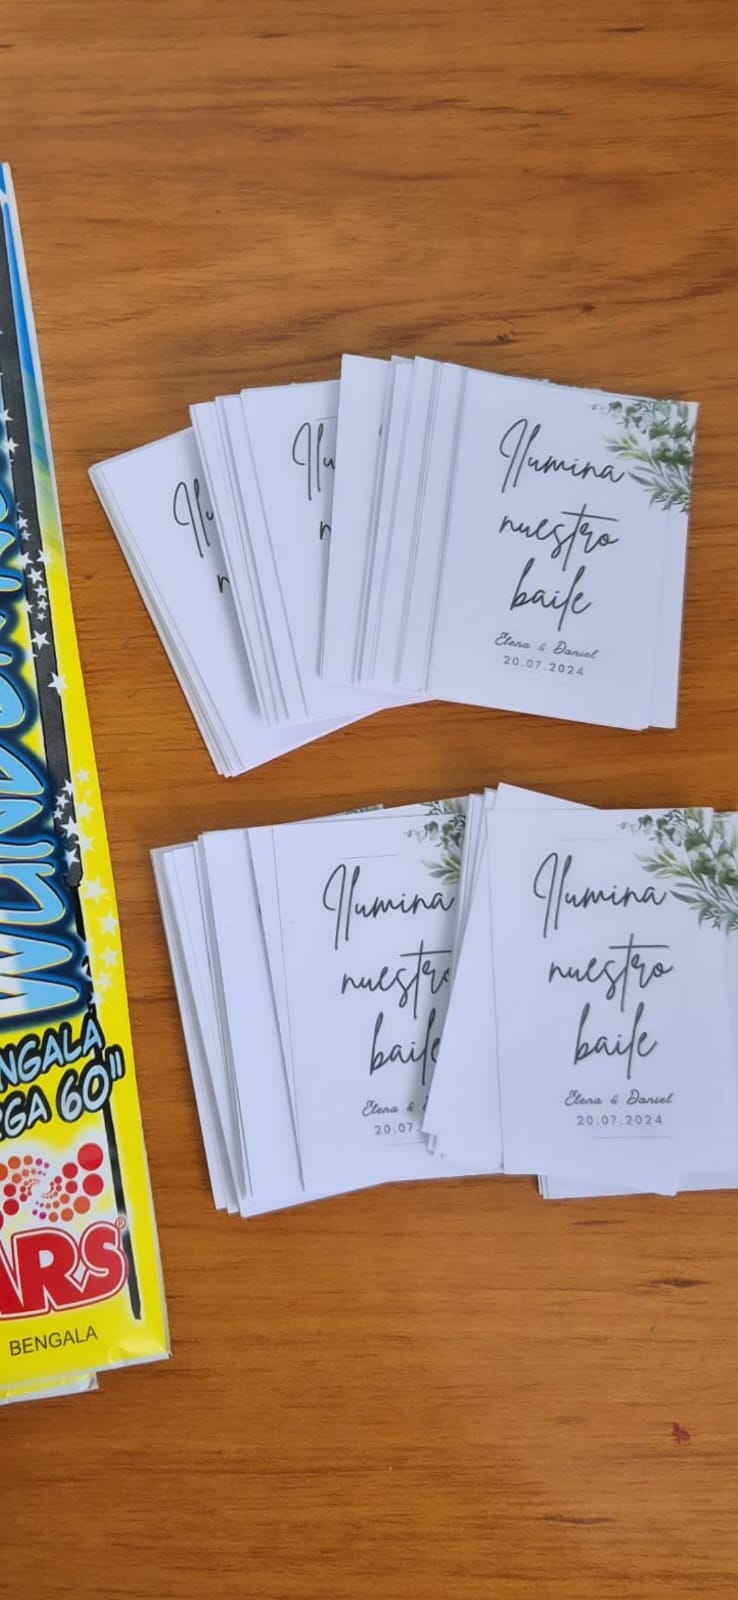 Ilu
Ilu
n
Ilumina
nuestro
baile
Elena & Daniel
20.07.2024
Ilumina
nuestro
baile
Elena &
20.07.
Ilumina
nuestro
baile
Elena & Daniel
20.07.2024
NGALA
RGA 60"
ARS®
BENGALA